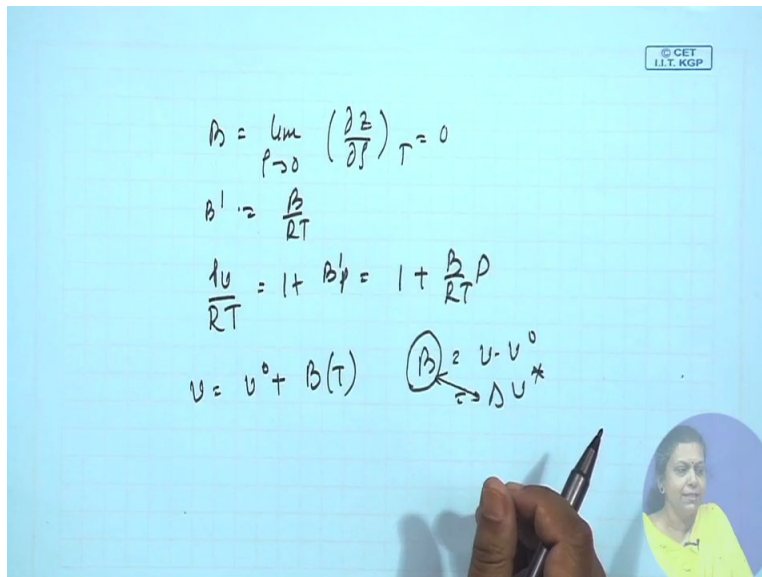 © CET
I.I.T. KGP
B = lim ρ→0 (∂Z/∂ρ)T = 0
B' = B/RT
Pv/RT = 1 + B'p = 1 + B/RT P
v = v⁰ + B(T) B = v - v⁰
= Δv*